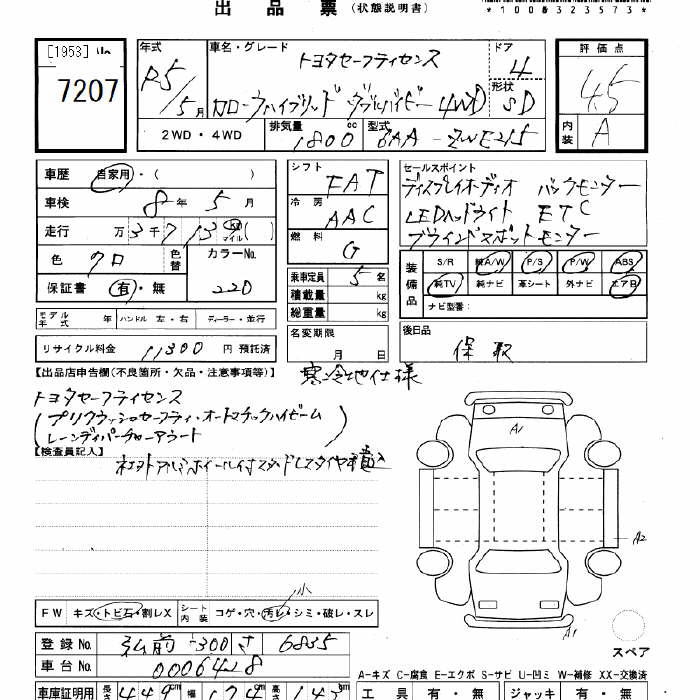 出品票 (状態説明書)
*1008323573*
[1953] いへ
7207
年式 R5/5月
車名・グレード トヨタセーフティセンス
カローラハイブリッド ダブルバイビー 4WD
ドア 4
形状 SD
2WD・4WD
排気量 1800 cc
型式 6AA-ZWE215
評価点 4.5
内装 A
車歴 自家用・( )
車検 8年5月
走行 万3千713 km マイル ( )
色 クロ 色替 カラーNo. 220
保証書 有・無
モデル年式 年 ハンドル 左・右 ディーラー・並行
リサイクル料金 11300 円 預託済
シフト FAT
冷房 AAC
燃料 G
乗車定員 5名
積載量 kg
総重量 kg
名変期限 月 日
セールスポイント
ディスプレイオーディオ バックモニター
LEDヘッドライト ETC
ブラインドスポットモニター
装備品 S/R 純A/W P/S P/W ABS
純TV 純ナビ 革シート 外ナビ エアB
ナビ型番:
後日品
保 取
【出品店申告欄(不良箇所・欠品・注意事項等)】 寒冷地仕様
トヨタセーフティセンス
(プリクラッシュセーフティ・オートマチックハイビーム
レーンディパーチャーアラート)
【検査員記入】
社ヨトアルミホイール付スタッドレスタイヤ積込
A1
A2
A1
小
FW キズ・トビ石・割レX シート内装 コゲ・穴・汚レ・シミ・破レ・スレ
登録No. 弘前 300 さ 6835
車台No. 0006428
スペア
A=キズ C=腐食 E=エクボ S=サビ U=凹ミ W=補修 XX=交換済
車庫証明用 長さ 449cm 幅 174cm 高さ 145cm
工具 有・無 ジャッキ 有・無